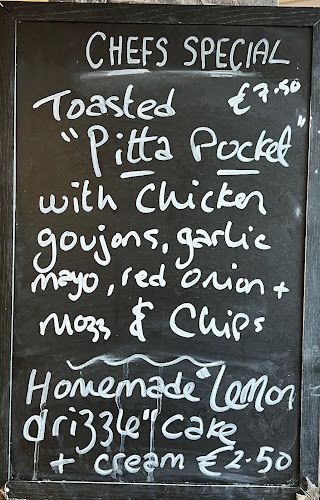 CHEFS SPECIAL
Toasted £7.50
"Pitta Pocket"
with Chicken
goujons, garlic
mayo, red onion +
Mozz & Chips
Homemade "Lemon
drizzle" cake
+ cream £2.50